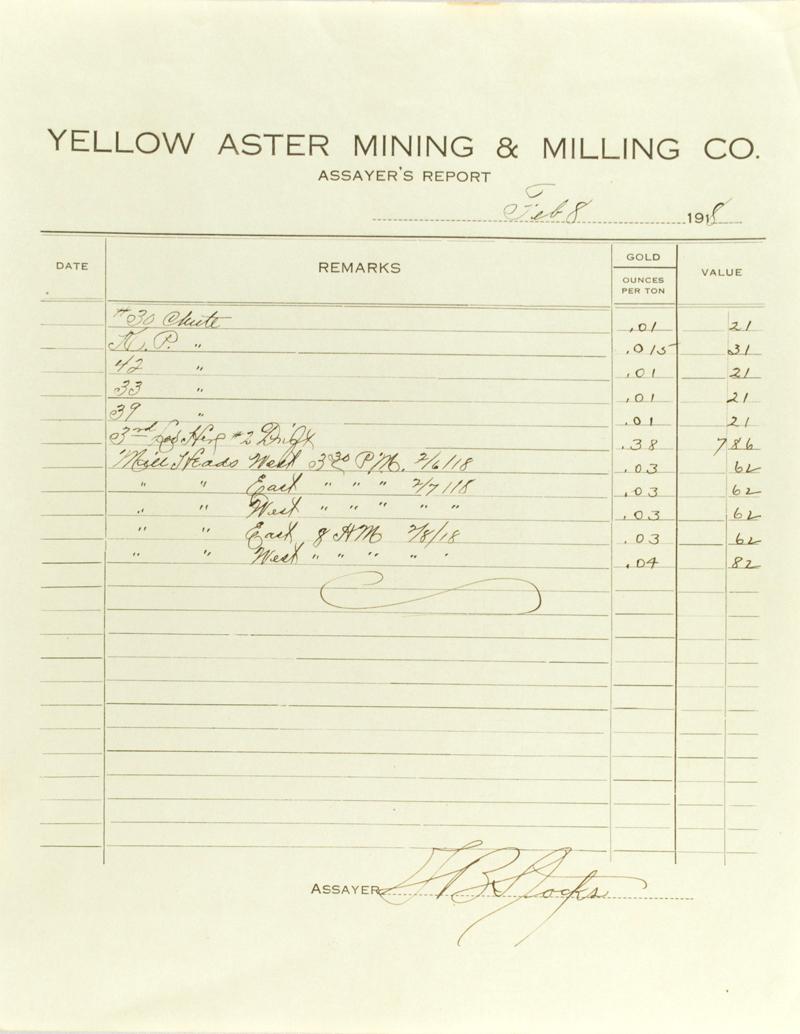 YELLOW ASTER MINING & MILLING CO.
ASSAYER'S REPORT
Feb 8 1918
DATE REMARKS GOLD OUNCES PER TON VALUE
#30 Chute .01 21
K. P. " .015 31
42 " .01 21
33 " .01 21
39 " .01 21
3rd #2 Drift .38 7 86
Mill Heads West 3 30 P.M. 2/6/18 .03 62
" " East " " " 2/7/18 .03 62
" " West " " " " " .03 62
" " East 8 AM 2/8/18 .03 62
" " West " " " " " .04 82
ASSAYER B Stocks